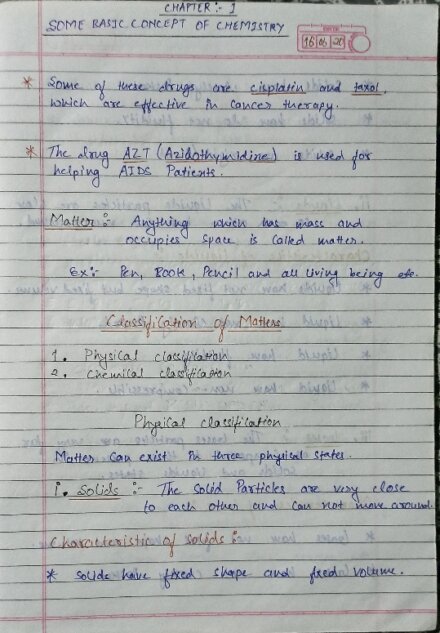 CHAPTER :- 1
SOME BASIC CONCEPT OF CHEMISTRY
* Some of these drugs are cisplatin and taxol,
which are effective in cancer therapy.
* The drug AZT (Azidothymidine) is used for
helping AIDS Patients.
Matter :- Anything which has mass and
occupies space is called matter.
Ex:- Pen, Book, Pencil and all living being etc.
Classification of Matters
1. Physical classification
2. Chemical classification
Physical classification
Matter Can exist in three physical states.
i. Solids :- The Solid Particles are very close
to each other and can not move around.
Characteristic of solids :
* solids have fixed shape and fixed volume.